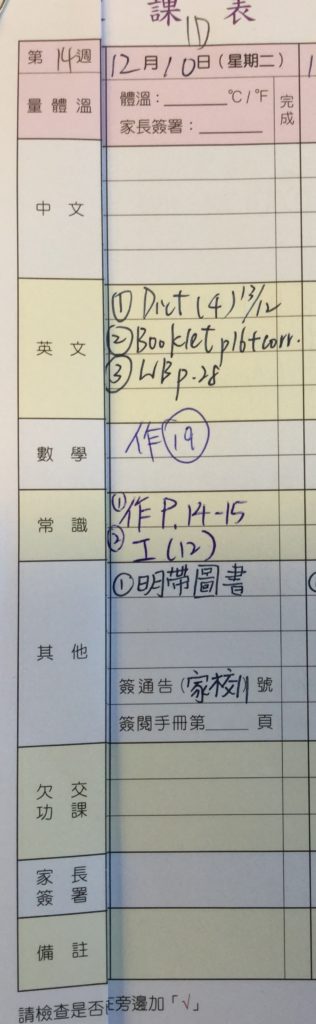 課 表
1D
第14週 12月10日(星期二)
量體溫 體溫:______ °C/°F 完成
家長簽署:______
中 文
英 文
① Dict (4) 13/12
② Booklet p16+corr.
③ WB p.28
數 學 作 19
常 識
① 作 P.14-15
② I (12)
其 他
① 明帶圖書
簽通告(家校11號
簽閱手冊第____頁
欠 交 功 課
家 長 簽 署
備 註
請檢查是否 旁邊加「√」